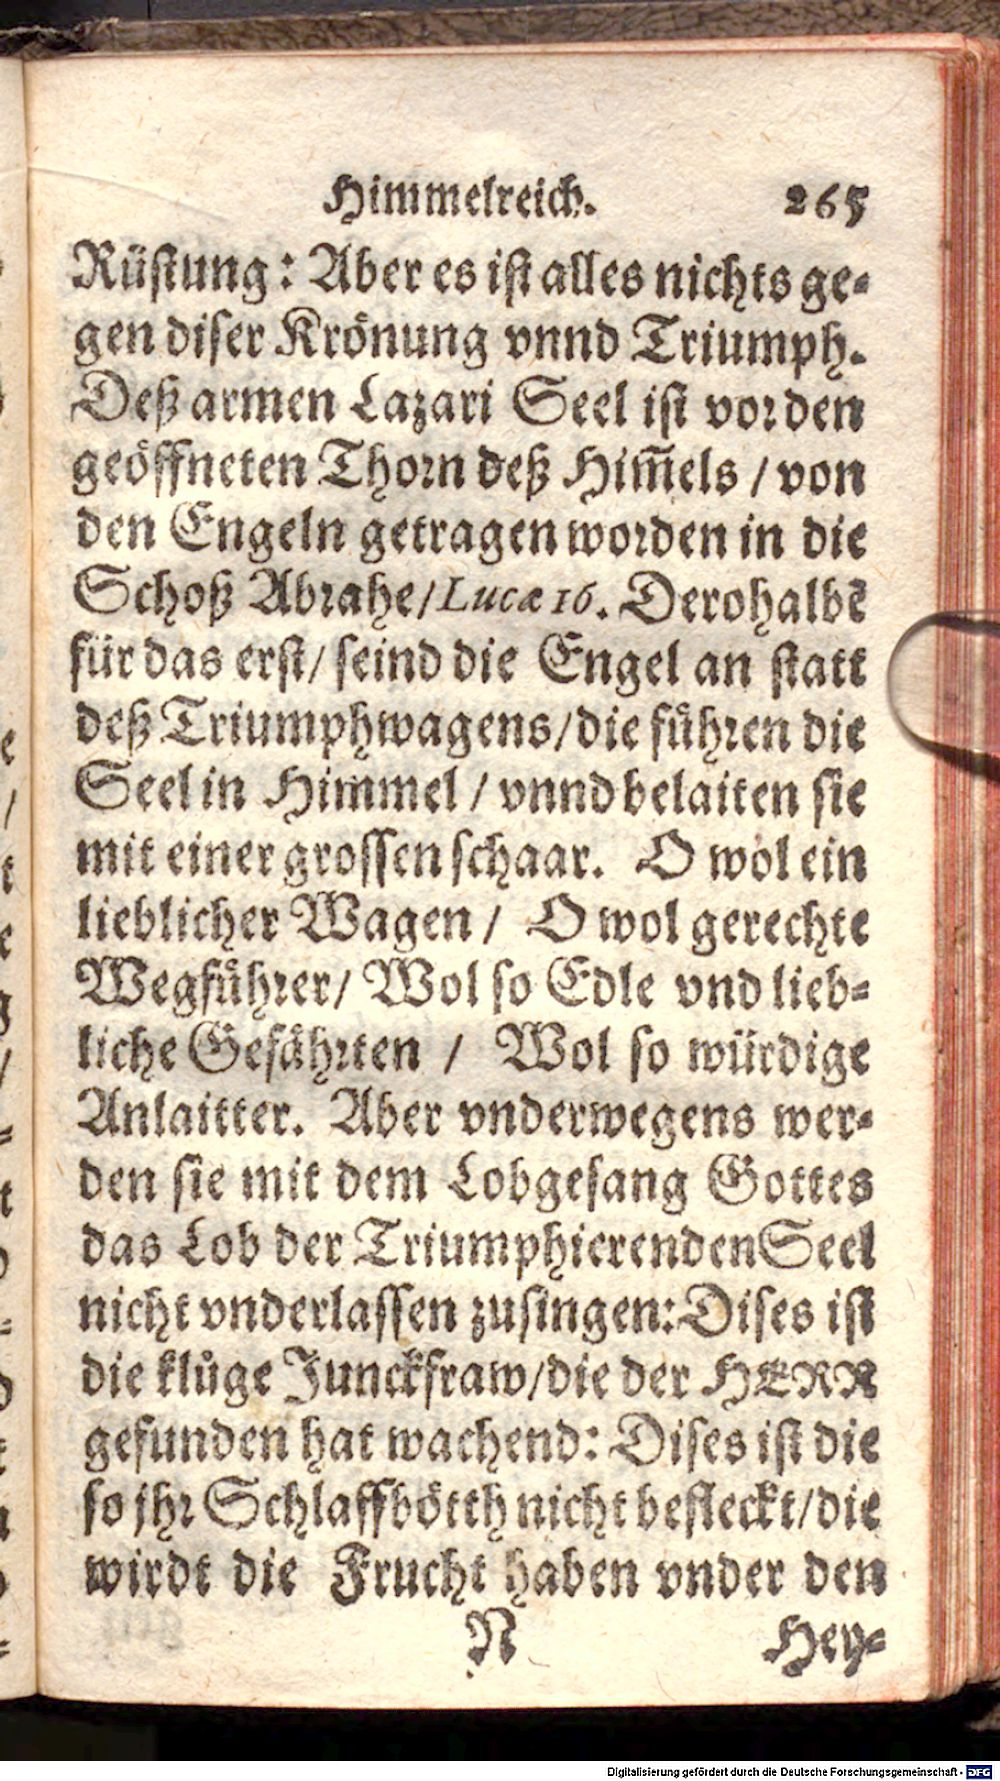 Himmelreich. 265
Rüstung: Aber es ist alles nichts ge-
gen diser Krönung vnnd Triumph.
Deß armen Lazari Seel ist vor den
geöffneten Thorn deß Him̃els / von
den Engeln getragen worden in die
Schoß Abrahe/ Lucæ 16. Derohalbẽ
für das erst/ seind die Engel an statt
deß Triumphwagens/die führen die
Seel in Himmel / vnnd belaiten sie
mit einer grossen schaar. O wol ein
lieblicher Wagen / O wol gerechte
Wegführer/ Wol so Edle vnd lieb-
liche Gefährten / Wol so würdige
Anlaitter. Aber vnderwegens wer-
den sie mit dem Lobgesang Gottes
das Lob der Triumphierenden Seel
nicht vnderlassen zusingen: Dises ist
die kluͦge Junckfraw/die der HERR
gefunden hat wachend: Dises ist die
so jhr Schlaffbötth nicht befleckt/die
wirdt die Frucht haben vnder den
N Hey-
Digitalisierung gefördert durch die Deutsche Forschungsgemeinschaft - DFG